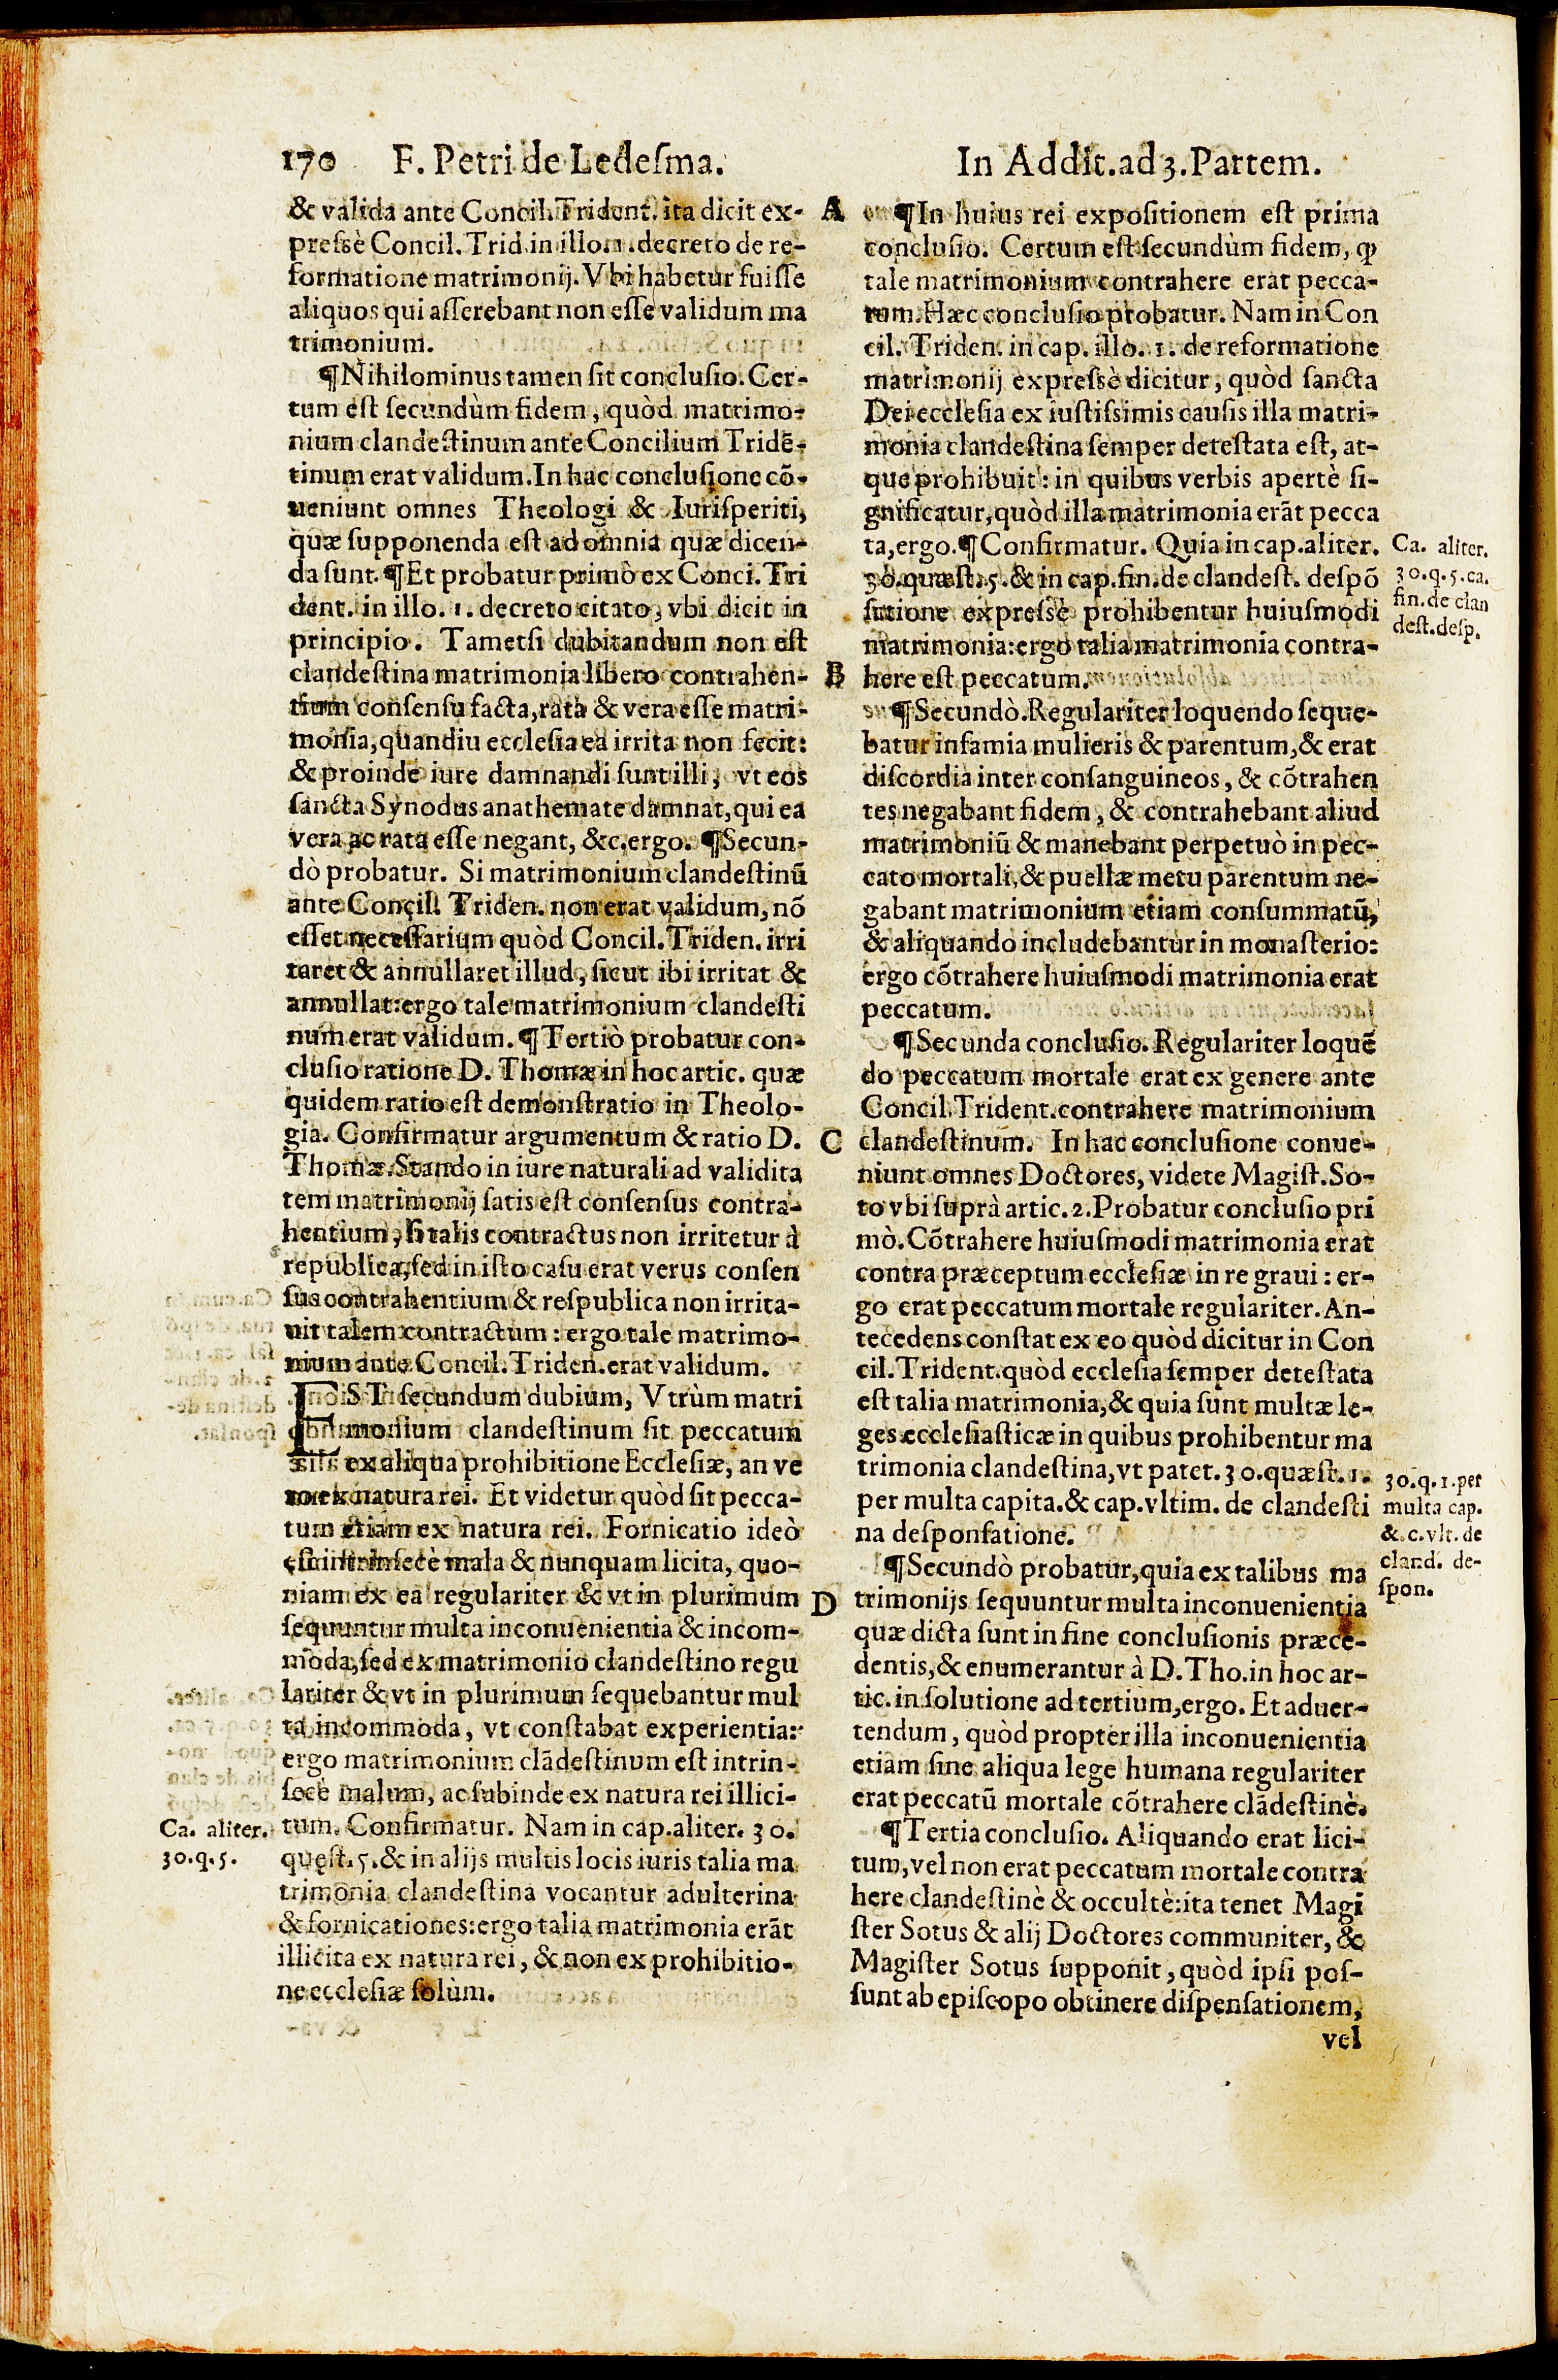 170 F. Petri de Ledeſma. In Addit. ad 3. Partem.
& valida ante Concil. Trident. ita dicit ex-
preſsè Concil. Trid. in illo. 1. decreto de re-
formatione matrimonij. Vbi habetur fuiſſe
aliquos qui aſſerebant non eſſe validum ma
trimonium.
¶Nihilominus tamen ſit concluſio. Cer-
tum eſt ſecundùm fidem, quòd matrimo-
nium clandeſtinum ante Concilium Tridē-
tinum erat validum. In hac concluſione cō-
ueniunt omnes Theologi & Iuriſperiti,
quæ ſupponenda eſt ad omnia quæ dicen-
da ſunt. ¶Et probatur primò ex Conci. Tri
dent. in illo. 1. decreto citato, vbi dicit in
principio. Tametſi dubitandum non eſt
clandeſtina matrimonia libero contrahen-
tium conſenſu facta, rata & vera eſſe matri-
monia, quandiu eccleſia ea irrita non fecit:
& proinde iure damnandi ſunt illi, vt eos
ſancta Synodus anathemate damnat, qui ea
vera ac rata eſſe negant, &c. ergo. ¶Secun-
dò probatur. Si matrimonium clandeſtinū
ante Concil. Triden. non erat validum, nō
eſſet neceſſarium quòd Concil. Triden. irri
taret & annullaret illud, ſicut ibi irritat &
annullat: ergo tale matrimonium clandeſti
num erat validum. ¶Tertiò probatur con-
cluſio ratione D. Thomæ in hoc artic. quæ
quidem ratio eſt demonſtratio in Theolo-
gia. Confirmatur argumentum & ratio D.
Thomæ. Stando in iure naturali ad validita
tem matrimonij ſatis eſt conſenſus contra-
hentium, ſi talis contractus non irritetur à
republica, ſed in iſto caſu erat verus conſen
ſus contrahentium & reſpublica non irrita-
uit talem contractum: ergo tale matrimo-
nium ante Concil. Triden. erat validum.
EST ſecundum dubium, Vtrùm matri
monium clandeſtinum ſit peccatum
ex aliqua prohibitione Eccleſiæ, an ve
rò ex natura rei. Et videtur quòd ſit pecca-
tum etiam ex natura rei. Fornicatio ideò
eſt intrinſecè mala & nunquam licita, quo-
niam ex ea regulariter & vt in plurimum
ſequuntur multa inconuenientia & incom-
moda, ſed ex matrimonio clandeſtino regu
lariter & vt in plurimum ſequebantur mul
ta incommoda, vt conſtabat experientia:
ergo matrimonium clādeſtinum eſt intrin-
ſecè malum, ac ſubinde ex natura rei illici-
tum. Confirmatur. Nam in cap. aliter. 30.
quęſt. 5. & in alijs multis locis iuris talia ma
trimonia clandeſtina vocantur adulterina
& fornicationes: ergo talia matrimonia erāt
illicita ex natura rei, & non ex prohibitio-
ne eccleſiæ ſolùm.
Ca. aliter.
30. q. 5.
A
B
C
D
¶In huius rei expoſitionem eſt prima
concluſio. Certum eſt ſecundùm fidem, ꝙ
tale matrimonium contrahere erat pecca-
tum. Hæc concluſio probatur. Nam in Con
cil. Triden. in cap. illo. 1. de reformatione
matrimonij expreſsè dicitur, quòd ſancta
Dei eccleſia ex iuſtiſsimis cauſis illa matri-
monia clandeſtina ſemper deteſtata eſt, at-
que prohibuit: in quibus verbis apertè ſi-
gnificatur, quòd illa matrimonia erāt pecca
ta, ergo. ¶Confirmatur. Quia in cap. aliter.
30. quæſt. 5. & in cap. fin. de clandeſt. deſpō
ſatione expreſsè prohibentur huiuſmodi
matrimonia: ergo talia matrimonia contra-
here eſt peccatum.
¶Secundò. Regulariter loquendo ſeque-
batur infamia mulieris & parentum, & erat
diſcordia inter conſanguineos, & cōtrahen
tes negabant fidem, & contrahebant aliud
matrimoniū & manebant perpetuò in pec-
cato mortali, & puellæ metu parentum ne-
gabant matrimonium etiam conſummatū,
& aliquando includebantur in monaſterio:
ergo cōtrahere huiuſmodi matrimonia erat
peccatum.
¶Secunda concluſio. Regulariter loquē
do peccatum mortale erat ex genere ante
Concil. Trident. contrahere matrimonium
clandeſtinum. In hac concluſione conue-
niunt omnes Doctores, videte Magiſt. So-
to vbi ſuprà artic. 2. Probatur concluſio pri
mò. Cōtrahere huiuſmodi matrimonia erat
contra præceptum eccleſiæ in re graui: er-
go erat peccatum mortale regulariter. An-
tecedens conſtat ex eo quòd dicitur in Con
cil. Trident. quòd eccleſia ſemper deteſtata
eſt talia matrimonia, & quia ſunt multæ le-
ges eccleſiaſticæ in quibus prohibentur ma
trimonia clandeſtina, vt patet. 30. quæſt. 1.
per multa capita. & cap. vltim. de clandeſti
na deſponſatione.
¶Secundò probatur, quia ex talibus ma
trimonijs ſequuntur multa inconuenientia
quæ dicta ſunt in fine concluſionis præce-
dentis, & enumerantur à D. Tho. in hoc ar-
tic. in ſolutione ad tertium, ergo. Et aduer-
tendum, quòd propter illa inconuenientia
etiam ſine aliqua lege humana regulariter
erat peccatū mortale cōtrahere clādeſtinè.
¶Tertia concluſio. Aliquando erat lici-
tum, vel non erat peccatum mortale contra
here clandeſtinè & occultè: ita tenet Magi
ſter Sotus & alij Doctores communiter, &
Magiſter Sotus ſupponit, quòd ipſi poſ-
ſunt ab epiſcopo obtinere diſpenſationem,
vel
Ca. aliter.
30. q. 5. ca.
fin. de clan
deſt. deſp.
30. q. 1. per
multa cap.
& c. vlt. de
cland. de-
ſpon.